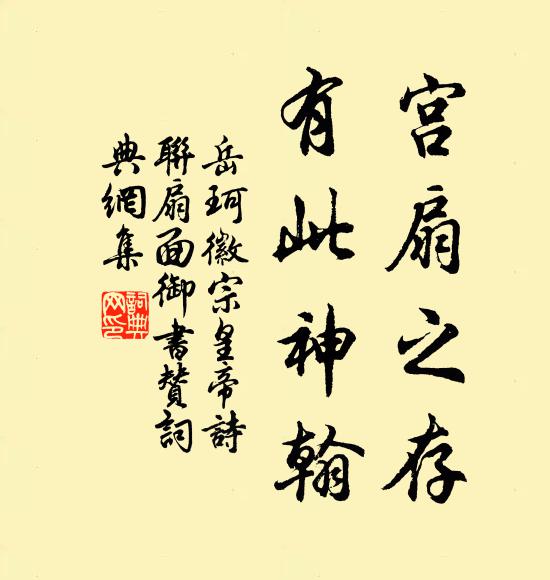 宮扇之存
有此神翰
岳珂徽宗皇帝詩
聯扇面御書贊詞
典網集
詞典网印